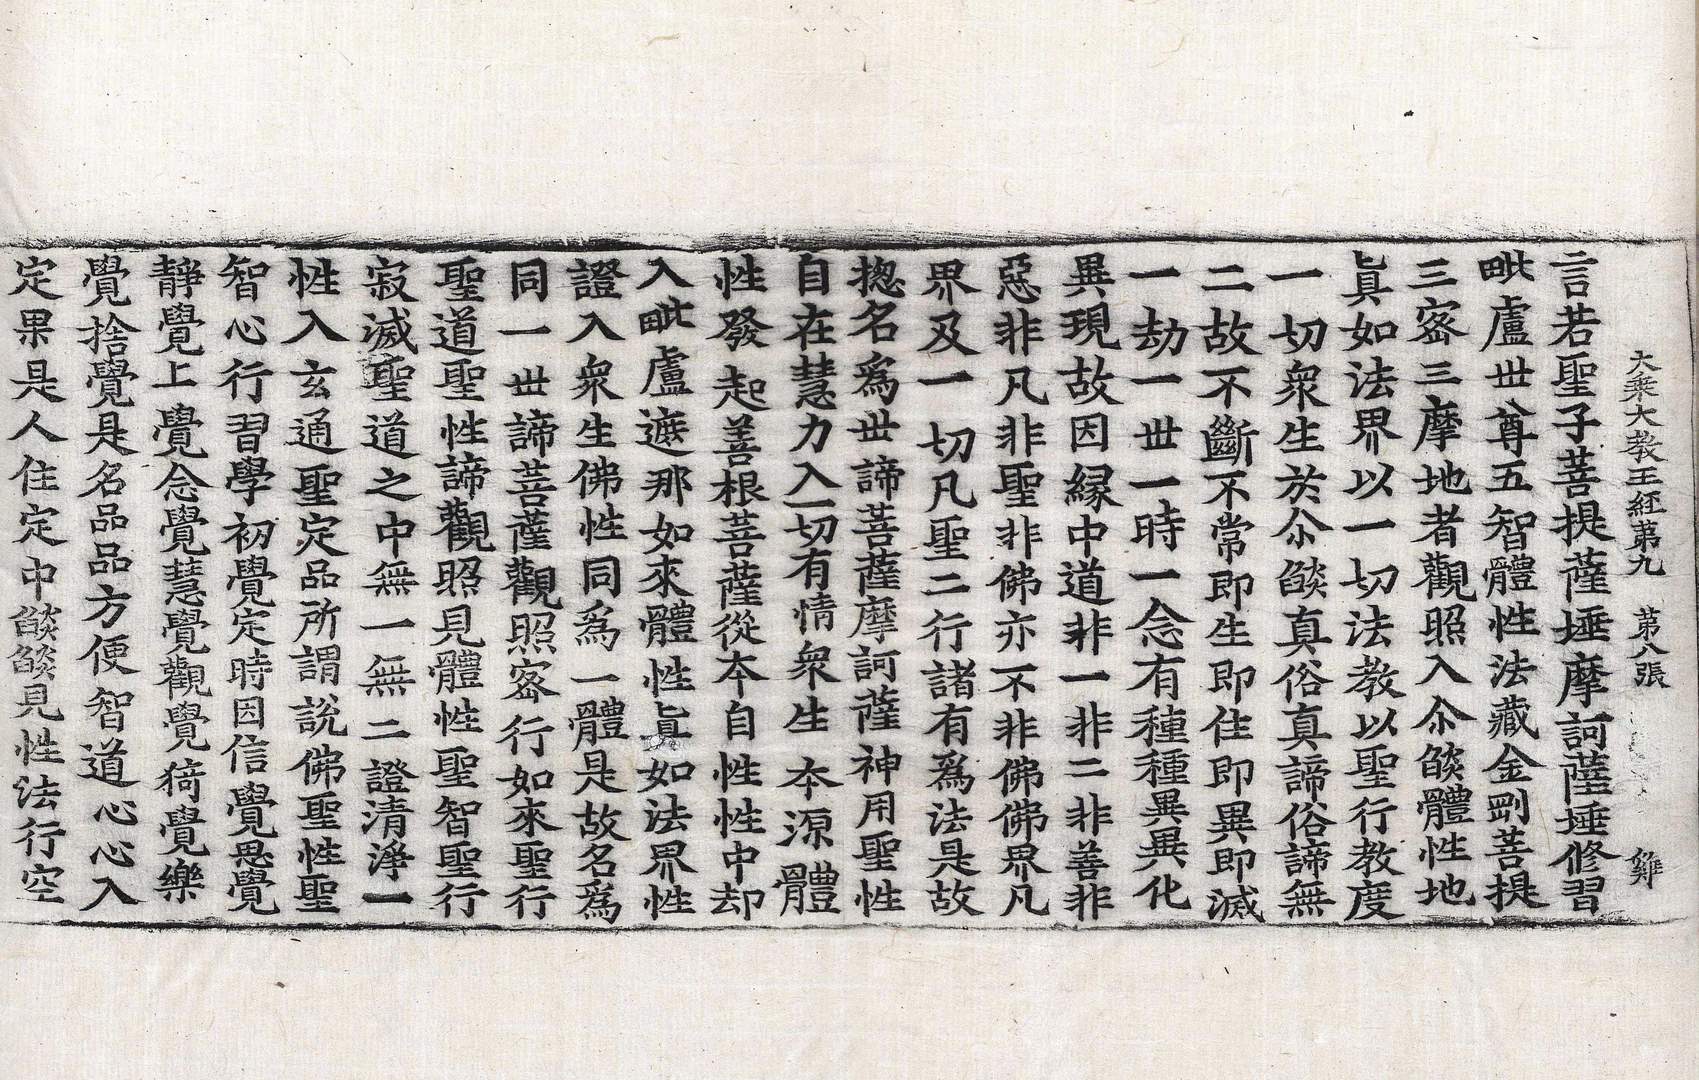 大乘大教王經第九 第八張 雞
言若聖子菩提薩埵摩訶薩埵修習
毗盧世尊五智體性法藏金剛菩提
三密三摩地者觀照入尒燄體性地
眞如法界以一切法教以聖行教度
一切衆生於尒燄真俗真諦俗諦無
二故不斷不常即生即住即異即滅
一劫一世一時一念有種種異異化
異現故因緣中道非一非二非善非
惡非凡非聖非佛亦不非佛佛界凡
界及一切凡聖二行諸有爲法是故
揔名爲世諦菩薩摩訶薩神用聖性
自在慧力入一切有情衆生本源體
性發起善根菩薩從本自性性中却
入毗盧遮那如來體性眞如法界性
證入衆生佛性同爲一體是故名爲
同一世諦菩薩觀照密行如來聖行
聖道聖性諦觀照見體性聖智聖行
寂滅聖道之中無一無二證清淨一
性入玄通聖定品所謂說佛聖性聖
智心行習學初覺定時因信覺思覺
靜覺上覺念覺慧覺觀覺猗覺樂
覺捨覺是名品品方便智道心心入
定果是人住定中燄燄見性法行空